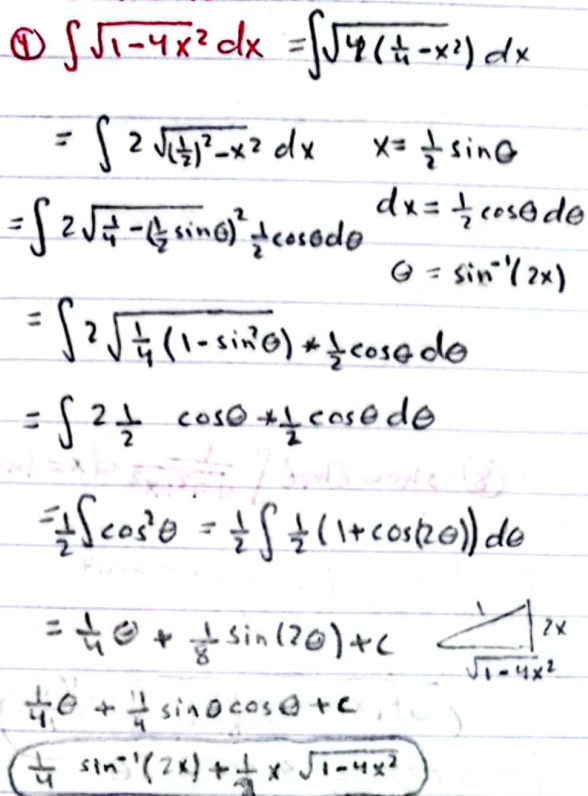 ④ ∫ √(1-4x²) dx = ∫ √(4(1/4 - x²)) dx
= ∫ 2 √((1/2)² - x²) dx    x = 1/2 sinθ
= ∫ 2 √(1/4 - (1/2 sinθ)²) 1/2 cosθ dθ    dx = 1/2 cosθ dθ
θ = sin⁻¹(2x)
= ∫ 2 √(1/4 (1 - sin²θ)) * 1/2 cosθ dθ
= ∫ 2 1/2 cosθ * 1/2 cosθ dθ
= 1/2 ∫ cos²θ = 1/2 ∫ 1/2 (1 + cos(2θ)) dθ
= 1/4 θ + 1/8 sin(2θ) + c    1    2x
√(1-4x²)
1/4 θ + 1/4 sinθ cosθ + c
1/4 sin⁻¹(2x) + x √(1-4x²)